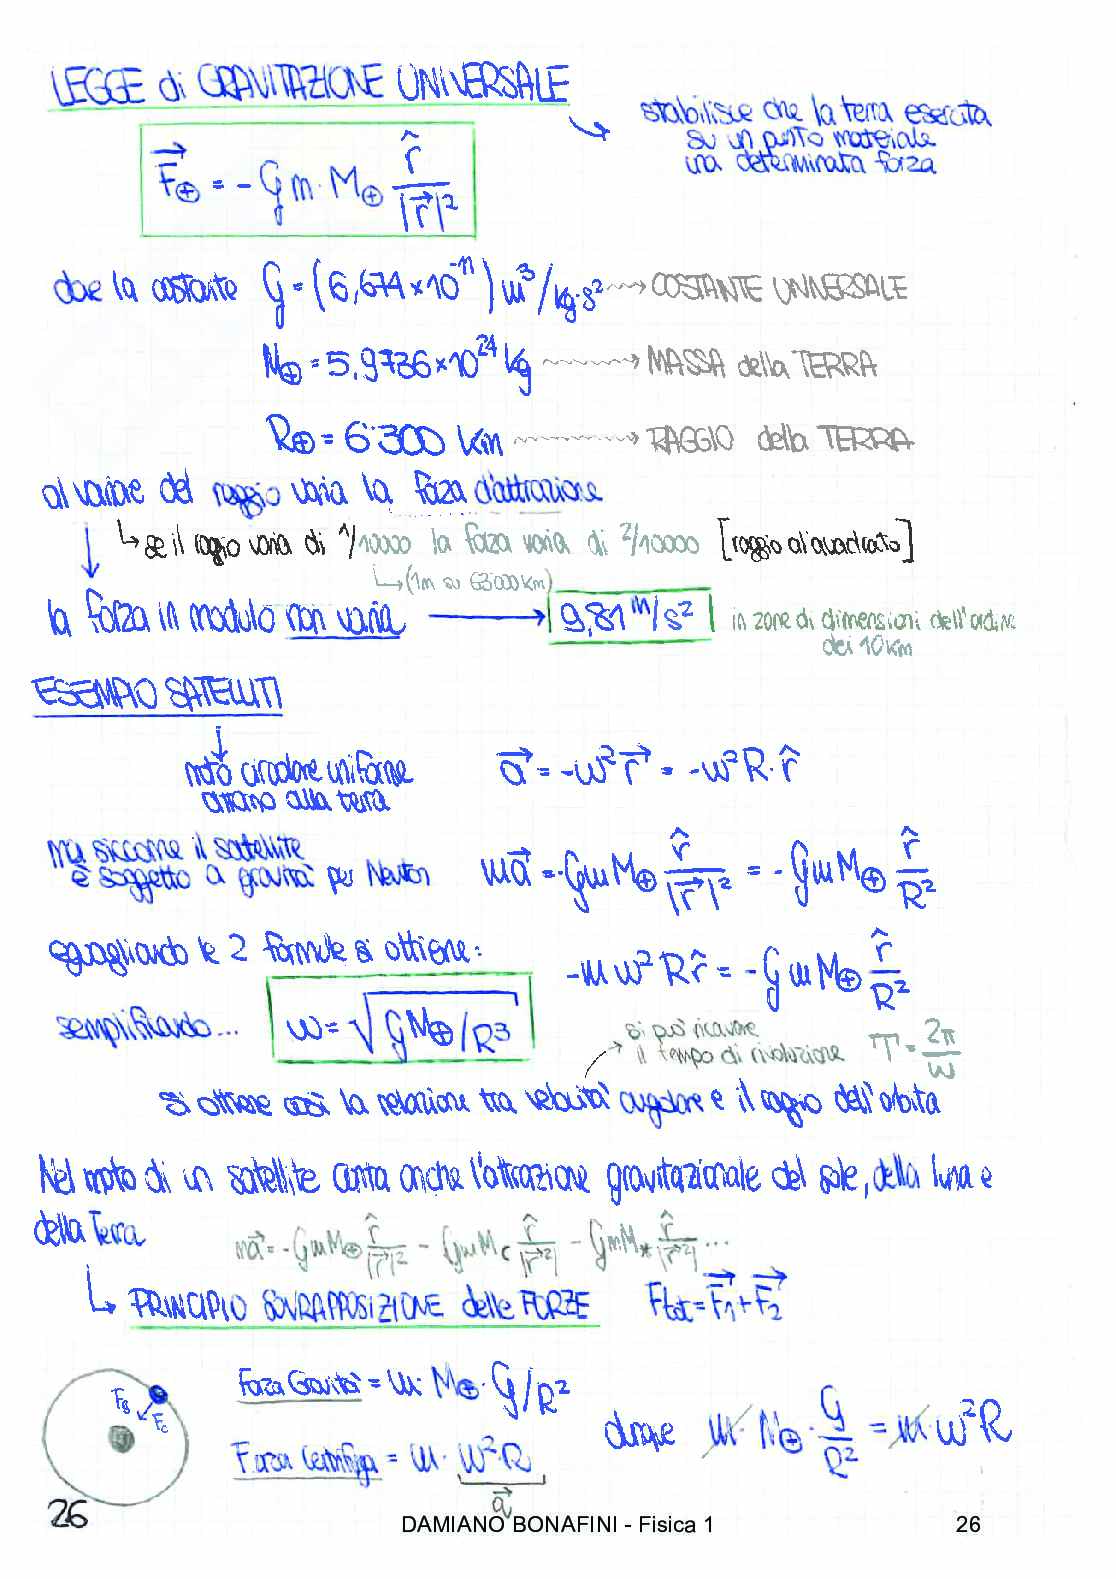 LEGGE di GRAVITAZIONE UNIVERSALE
stabilisce che la terra esercita
su un punto materiale
una determinata forza
F⃗⊕ = - G m · M⊕ r̂ / |r⃗|²
dove la costante G = (6,674 × 10⁻¹¹) m³/kg·s² → COSTANTE UNIVERSALE
M⊕ = 5,9736 × 10²⁴ Kg → MASSA della TERRA
R⊕ = 6'300 Km → RAGGIO della TERRA
al variare del raggio varia la forza d'attrazione
↳ se il raggio varia di 1/10000 la forza varia di 2/10000 [raggio al quadrato]
↳ (1m su 63000 Km)
la forza in modulo non varia → 9,81 m/s² in zone di dimensioni dell'ordine
dei 10 Km
ESEMPIO SATELLITI
moto circolare uniforme a⃗ = -ω² r⃗ = -ω² R · r̂
attorno alla terra
ma siccome il satellite
è soggetto a gravità per Newton ma⃗ = - G m M⊕ r̂ / |r⃗|² = - G m M⊕ r̂ / R²
eguagliando le 2 formule si ottiene: - m ω² R r̂ = - G m M⊕ r̂ / R²
semplificando... ω = √(G M⊕ / R³)
si può ricavare
il tempo di rivoluzione T = 2π / ω
si ottiene così la relazione tra velocità angolare e il raggio dell'orbita
Nel moto di un satellite conta anche l'attrazione gravitazionale del sole, della luna e
della Terra ma⃗ = - G m M⊕ r̂ / |r⃗|² - G m M☾ r̂ / |r⃗²| - G m M* r̂ / |r⃗²| ...
↳ PRINCIPIO SOVRAPPOSIZIONE delle FORZE Ftot = F⃗₁ + F⃗₂
Forza Gravità = m · M⊕ · G / R²
Fg Fc
Forza Centrifuga = m · ω² · R
a⃗
dunque m · M⊕ · G / R² = m · ω² R
26
DAMIANO BONAFINI - Fisica 1 26